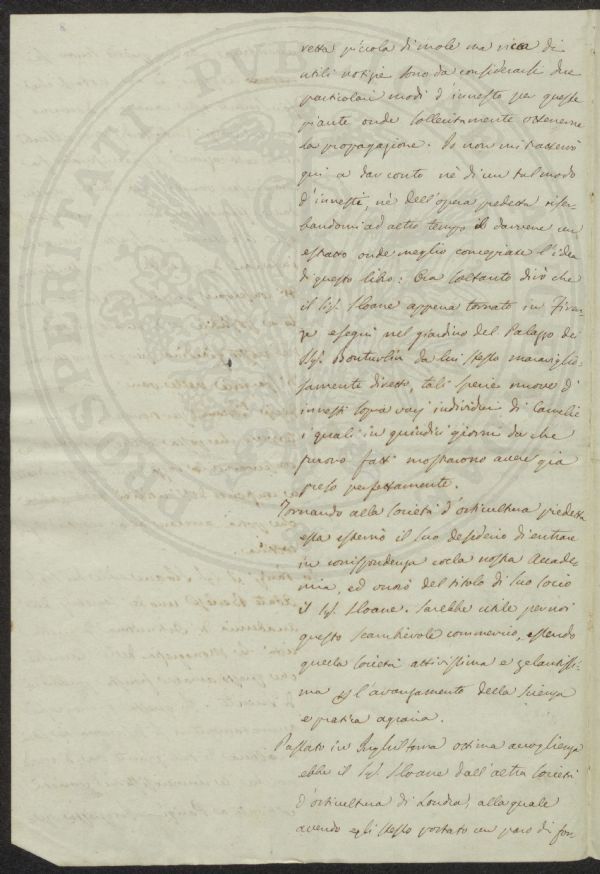 retta piccola di mole ma ricca di
utili notizie sono da considerarsi due
particolari modi d'innesto per queste
piante onde sollecitamente ottenerne
la propagazione. Io non mi tratterrò
qui a dar conto nè di un tal modo
d'innesti, nè dell'opera predetta riser-
bandomi ad altro tempo il darvene un
estratto onde meglio concepiate l'idea
di questo libro: Ora soltanto dirò che
il Sig. Sloane appena tornato in Firen-
ze eseguì nel giardino del Palazzo dei
Sigg. Bouturlin da lui stesso maraviglio-
samente diretto, tali specie nuove d'
innesti sopra varj individui di Camelie
i quali in quindici giorni da che
furono fatti mostrarono avere già
preso perfettamente.
Tornando alla Società d'orticultura predetta
essa esternò il suo desiderio di entrare
in corrispondenza colla nostra Accade-
mia, ed onorò del titolo di suo socio
il Sig. Sloane. Sarebbe utile per noi
questo scambievole commercio, essendo
quella Società attivissima e zelantissi-
ma per l'avanzamento della scienza
e pratica agraria.
Passato in Inghilterra ottima accoglienza
ebbe il Sig. Sloane dall'altra Società
d'orticultura di Londra, alla quale
avendo egli stesso portato un paro di for-
PROSPERITATI PUB